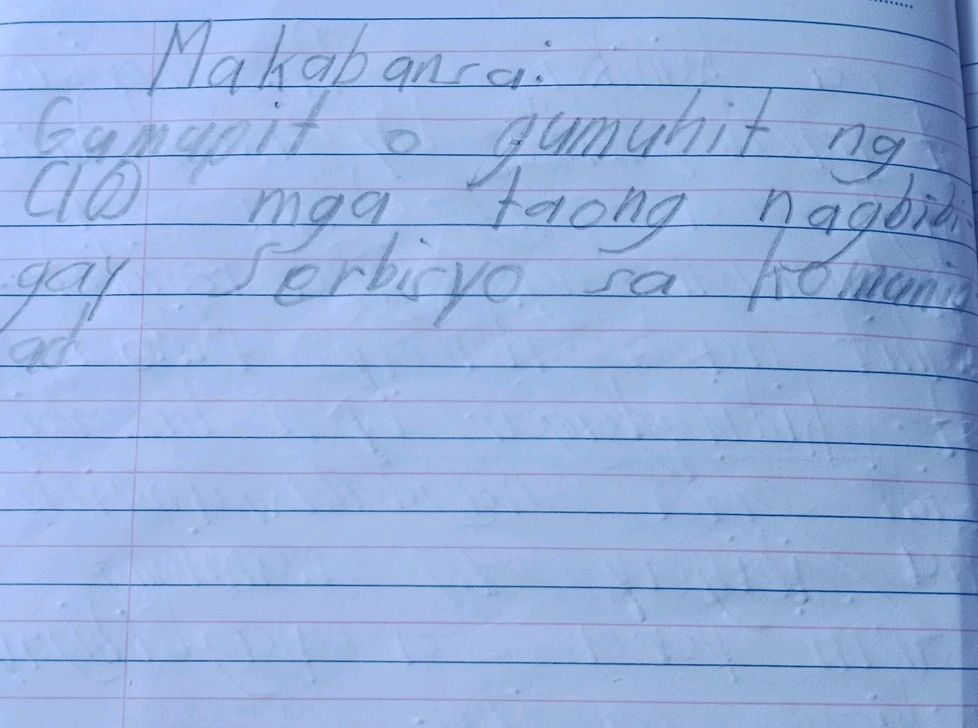 Makabansa.
Gumupit o gumuhit ng
(10) mga taong nagbibi
gay Serbisyo sa komunid
ad